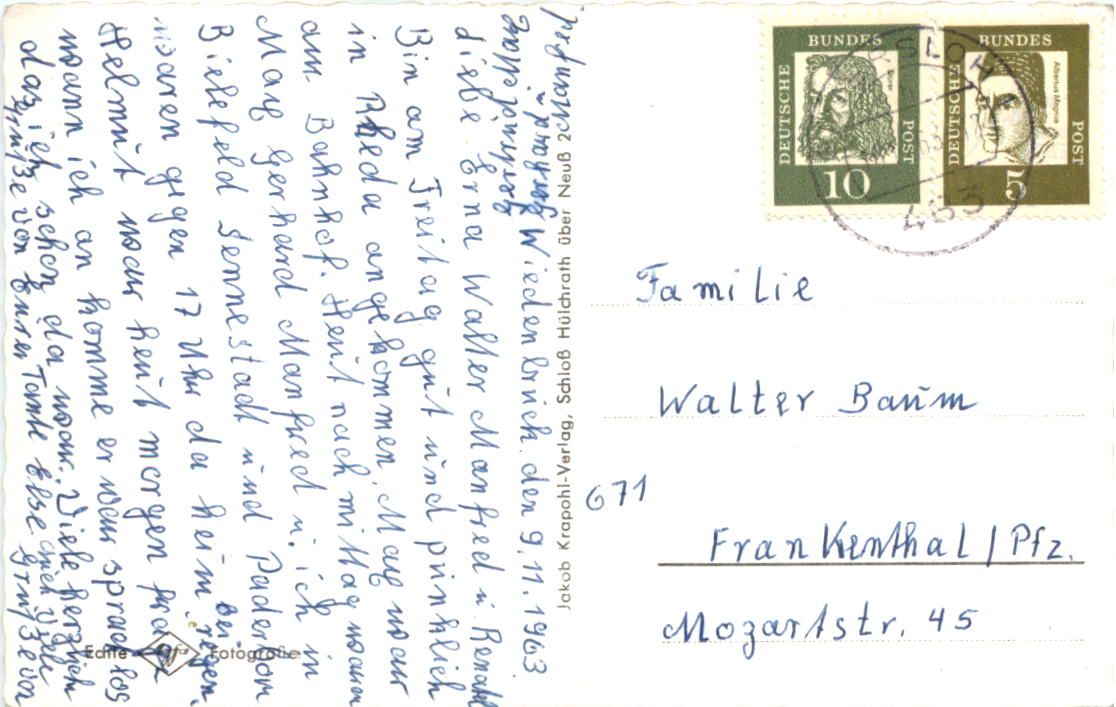 Wiedenbrück den 9.11.1963
Liebe Erna Walter Manfred u. Renate
Bin am Freitag gut und pünklich
in Rheda angekommen, Mag war
am Bahnhof. Heut nachmittag waren
Mag Gerhard Manfred u. ich in
Bielefeld Sennestadt und Paderborn
waren gegen 17 Uhr da heim, bei regen.
Helmut war heut morgen
wann ich an komme er war sprachlos
das ich schon da war. Viele herzlich
Grüße von Eurer Tante Else auch viele Grüße von
Gerhard u. Manfred
Jakob Krapohl-Verlag, Schloß Hülchrath über Neuß 2
Echte Agfa Fotografie
DEUTSCHE BUNDES POST
Dürer
10
DEUTSCHE BUNDES POST
Albertus Magnus
5
483
Familie
Walter Baum
671
Frankenthal/Pfz.
Mozartstr. 45